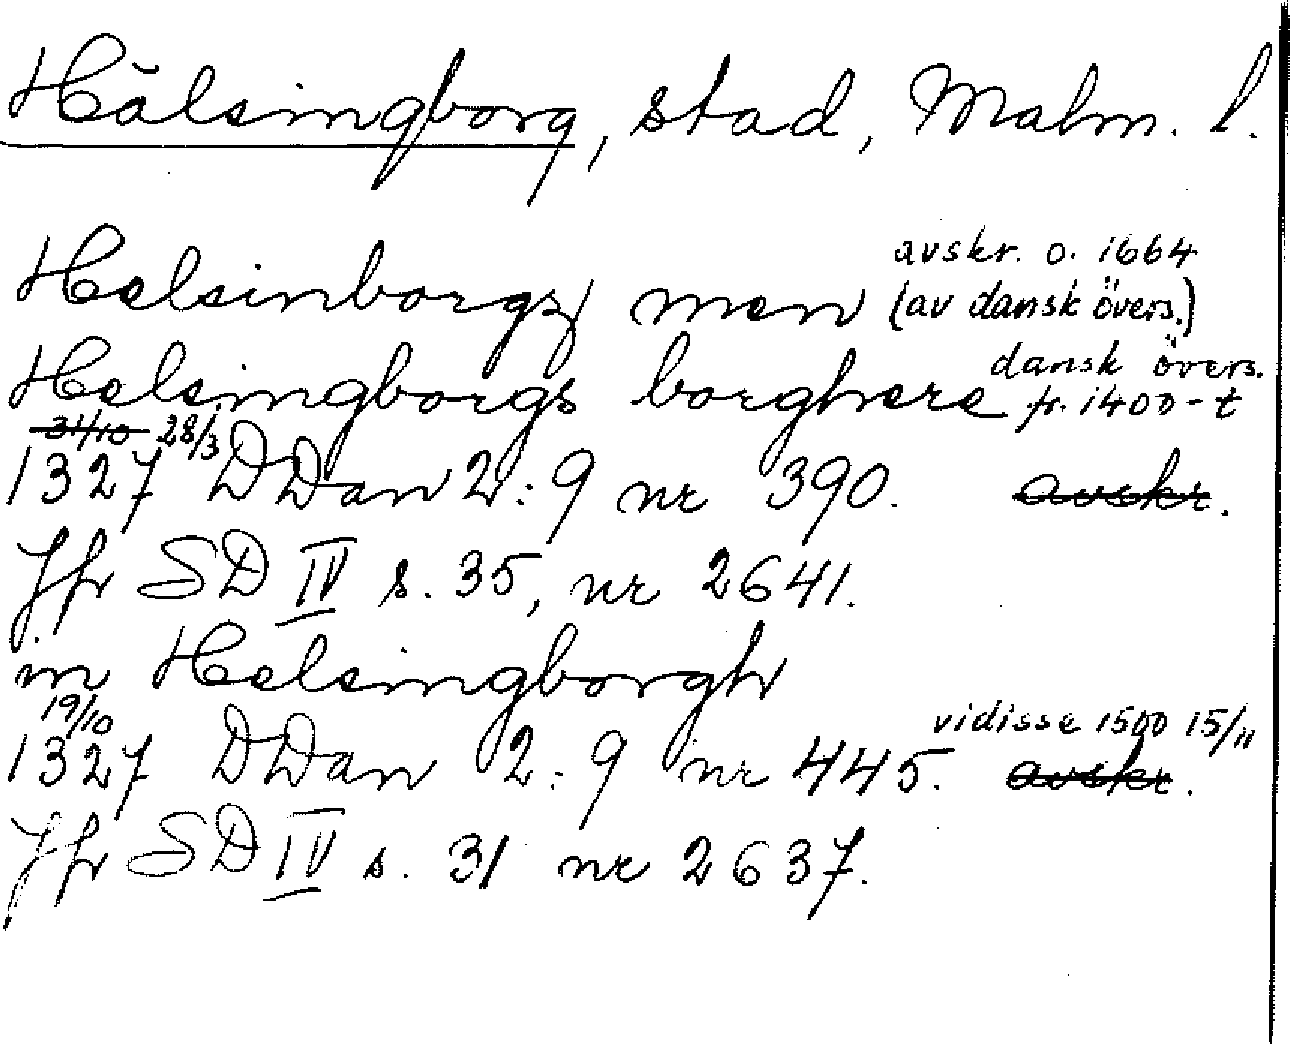 Hälsingborg, stad, Malm. l.
avskr. o. 1664
Helsinborgz men (av dansk övers.)
Helsingborgs borghere dansk övers. fr. 1400-t
31/10 28/3
1327 DDan 2:9 nr 390. avskr.
Jfr SD IV s. 35, nr 2641.
in Helsingborgh
19/10
vidisse 1500 15/11
1327 DDan 2:9 nr 445. avskr.
Jfr SD IV s. 31 nr 2637.